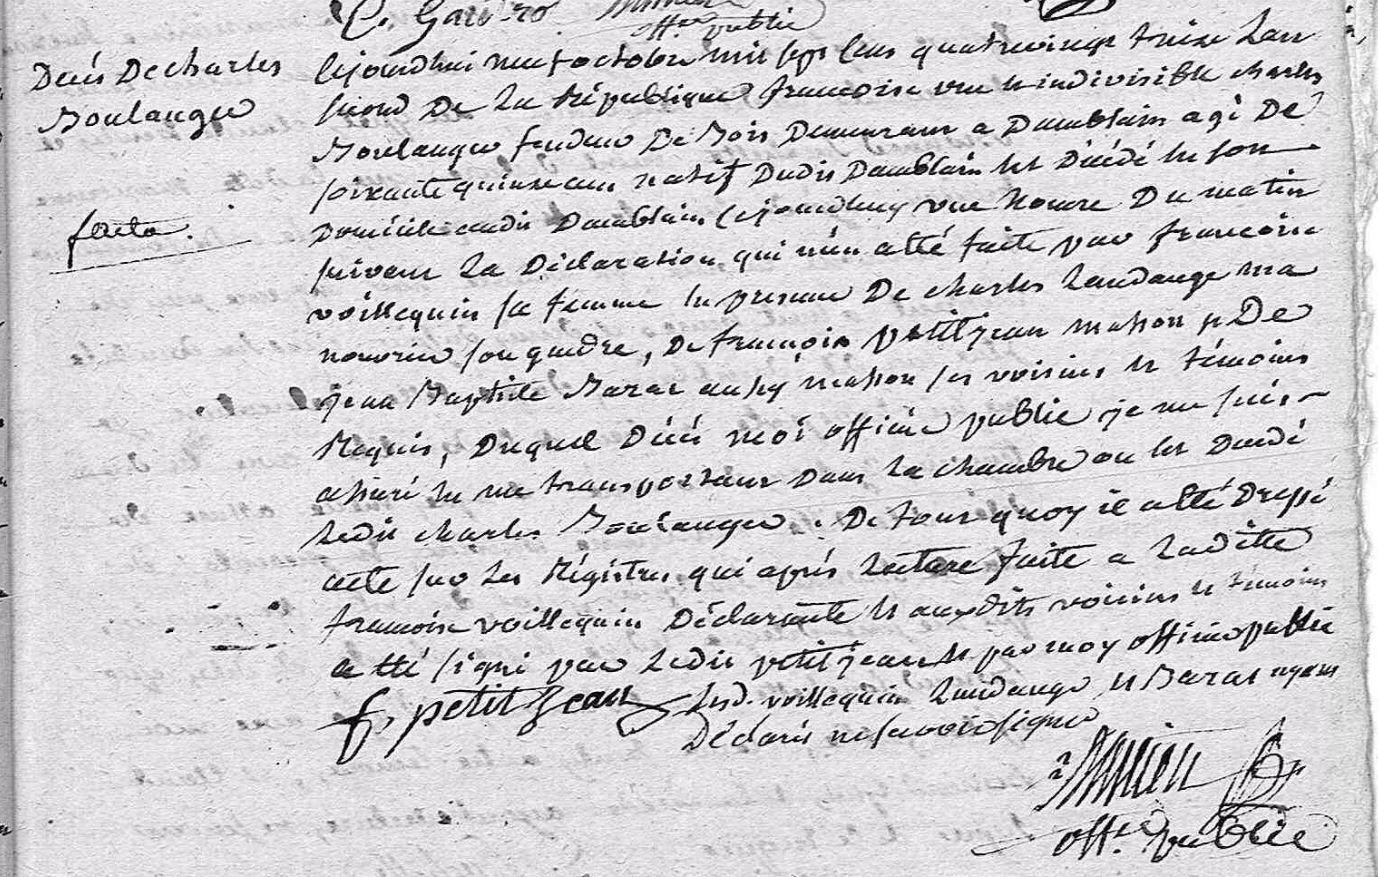 C. Gau
off. public
Decés De charles
Boulangé
facta.
Cejourdhui neuf octobre mil sept cens quatrevingt treize Lan
second De La République francoise une et indivisible charles
Boulangé fendeur De Bois Demeurant a Damblain agé De
soixante quinze ans natif Dudit Damblain est Décédé en son
Domicile audit Damblain Cejourdhuy une heure Du matin
suivant La Déclaration qui m'en a été faite par francoise
voillequin sa femme en presence De charles Landange ma
nouvrier son gendre, De francois petitjean masson et De
jean Baptiste Marat aussy masson ses voisins et témoins
Requis, Duquel Décés moi officié public je me suis
assuré en me transportant Dans La chambre ou est Decédé
Ledit charles Boulangé. De tout quoy il a été Dressé
acte sur Les Régistres qui après Lecture faite a Laditte
francoise voillequin Déclarante et auxdits voisins et témoins
a été signé par Ledit petitjean et par moy officié public
Lesd. voillequin Landange et Marat ayant
Déclarés ne savoir signé
f. petit Jean
off. public